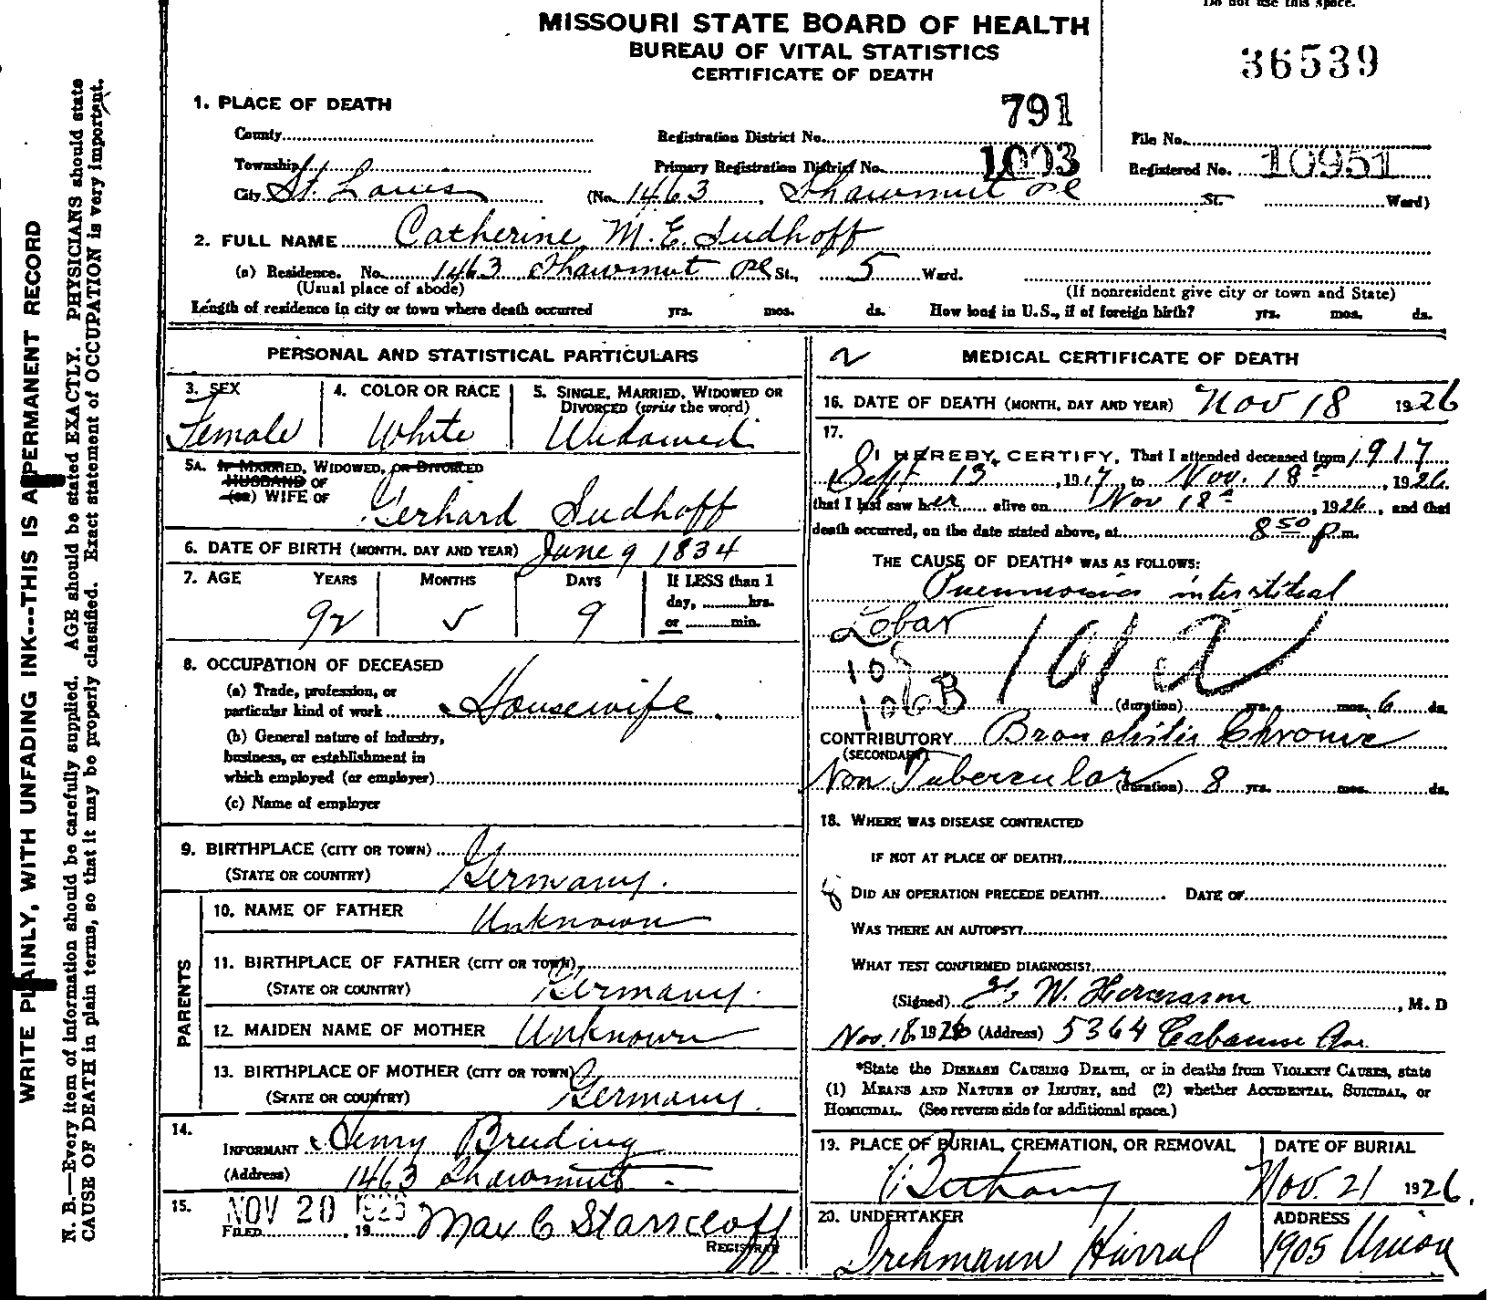 Do not use this space.
MISSOURI STATE BOARD OF HEALTH
BUREAU OF VITAL STATISTICS
CERTIFICATE OF DEATH
36539
1. PLACE OF DEATH
791
County
Registration District No.
File No.
Township
Primary Registration District No. 1003
Registered No. 10951
City St. Louis (No. 1463 Shawmut Pl St. Ward)
2. FULL NAME Catherine M. E. Sudhoff
(a) Residence. No. 1463 Shawmut Pl St., 5 Ward.
(Usual place of abode) (If nonresident give city or town and State)
Length of residence in city or town where death occurred yrs. mos. ds. How long in U.S., if of foreign birth? yrs. mos. ds.
PERSONAL AND STATISTICAL PARTICULARS
3. SEX
Female
4. COLOR OR RACE
White
5. SINGLE, MARRIED, WIDOWED OR
DIVORCED (write the word)
Widowed
5A. IF MARRIED, WIDOWED, OR DIVORCED
HUSBAND OF
(OR) WIFE OF
Gerhard Sudhoff
6. DATE OF BIRTH (MONTH, DAY AND YEAR) June 9 1834
7. AGE YEARS MONTHS DAYS If LESS than 1
day, hrs.
or min.
92 5 9
8. OCCUPATION OF DECEASED
(a) Trade, profession, or
particular kind of work Housewife.
(b) General nature of industry,
business, or establishment in
which employed (or employer)
(c) Name of employer
9. BIRTHPLACE (CITY OR TOWN)
(STATE OR COUNTRY) Germany.
PARENTS
10. NAME OF FATHER Unknown
11. BIRTHPLACE OF FATHER (CITY OR TOWN)
(STATE OR COUNTRY) Germany.
12. MAIDEN NAME OF MOTHER Unknown
13. BIRTHPLACE OF MOTHER (CITY OR TOWN)
(STATE OR COUNTRY) Germany.
14.
INFORMANT Henry Breuding
(Address) 1463 Shawmut.
15.
NOV 20 1926
FILED , 19 Max C Starkloff
REGISTRAR
2 MEDICAL CERTIFICATE OF DEATH
16. DATE OF DEATH (MONTH, DAY AND YEAR) Nov 18 1926
17.
I HEREBY CERTIFY, That I attended deceased from 1917
Sept 13, 1917, to Nov. 18, 1926,
that I last saw her alive on Nov 18, 1926, and that
death occurred, on the date stated above, at 8 50 P m.
THE CAUSE OF DEATH* WAS AS FOLLOWS:
Pneumonia interstitial
Lobar
101 a
106B
(duration) yrs. mos. 6 ds.
CONTRIBUTORY Bronchitis Chronic
(SECONDARY)
Non Tubercular (duration) 8 yrs. mos. ds.
18. WHERE WAS DISEASE CONTRACTED
IF NOT AT PLACE OF DEATH?
DID AN OPERATION PRECEDE DEATH? DATE OF
WAS THERE AN AUTOPSY?
WHAT TEST CONFIRMED DIAGNOSIS?
(Signed) W. , M. D
Nov. 18, 1926 (Address) 5364 Cabanne Ave.
*State the DISEASE CAUSING DEATH, or in deaths from VIOLENT CAUSES, state
(1) MEANS AND NATURE OF INJURY, and (2) whether ACCIDENTAL, SUICIDAL, or
HOMICIDAL. (See reverse side for additional space.)
19. PLACE OF BURIAL, CREMATION, OR REMOVAL
Bethany
DATE OF BURIAL
Nov. 21 1926.
20. UNDERTAKER
Drehmann Harral
ADDRESS
1905 Union
WRITE PLAINLY, WITH UNFADING INK---THIS IS A PERMANENT RECORD
N. B.—Every item of information should be carefully supplied. AGE should be stated EXACTLY. PHYSICIANS should state
CAUSE OF DEATH in plain terms, so that it may be properly classified. Exact statement of OCCUPATION is very important.